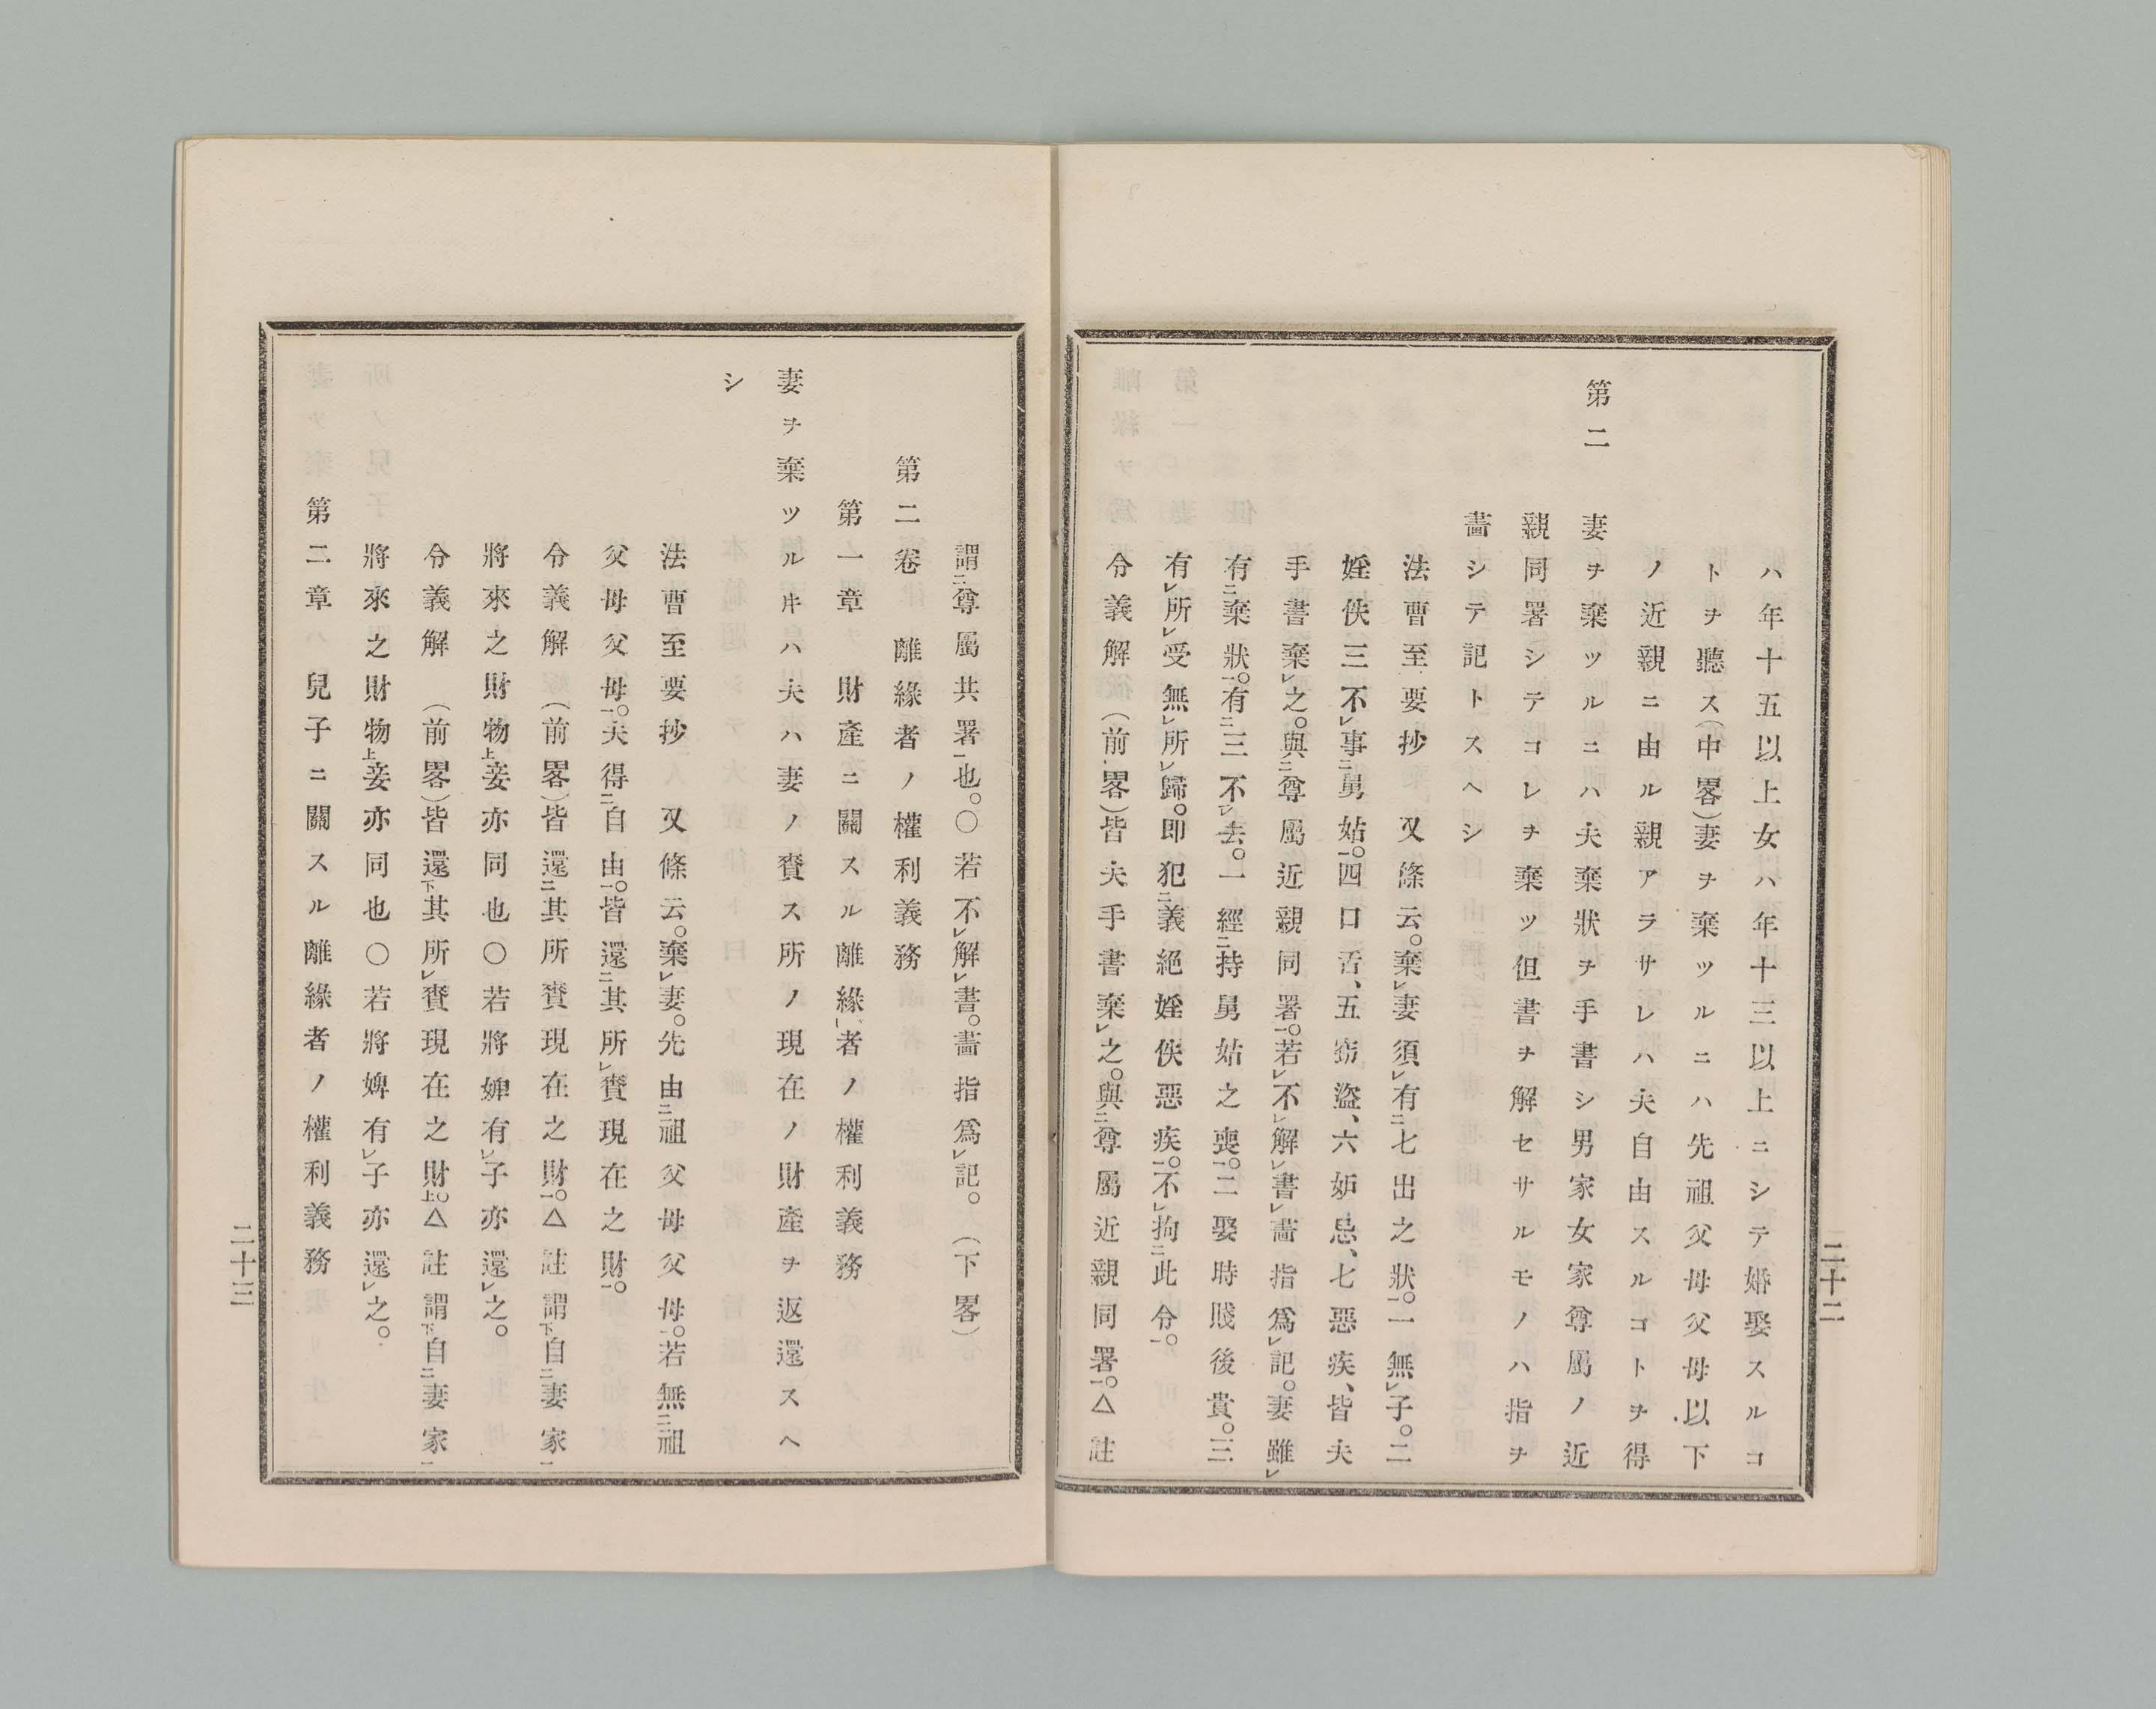 ハ年十五以上女ハ年十三以上ニシテ婚娶スルコ
トヲ聽ス(中畧)妻ヲ棄ツルニハ先祖父母父母以下
ノ近親ニ由ル親アラサレハ夫自由スルコトヲ得
第二　妻ヲ棄ツルニハ夫棄狀ヲ手書シ男家女家尊屬ノ近
親同署シテコレヲ棄ツ但書ヲ解セサルモノハ指ヲ
畵シテ記トスヘシ
法曹至要抄　又條云。棄レ妻須レ有二七出之狀一。一無レ子。二
婬佚三不レ事二舅姑一。四口舌、五窃盜、六妬忌、七惡疾、皆夫
手書棄レ之。與二尊屬近親同署一。若レ不レ解レ書レ畵指爲レ記。妻雖レ
有二棄狀一。有二三不レ去。一經二持舅姑之喪一。二娶時賤後貴。三
有レ所レ受無レ所レ歸。即犯二義絕婬佚惡疾一。不レ拘二此令一。
令義解(前畧)皆夫手書棄レ之。與二尊屬近親同署一。△註
二十二
謂二尊屬共署一也。○若不レ解レ書。畵指爲レ記。(下畧)
第二卷　離緣者ノ權利義務
第一章　財產ニ關スル離緣者ノ權利義務
妻ヲ棄ツル𪜈ハ夫ハ妻ノ賚ス所ノ現在ノ財產ヲ返還スヘ
シ
法曹至要抄　又條云。棄レ妻。先由二祖父母父母一。若無二祖
父母父母一。夫得二自由一。皆還二其所レ賚現在之財一。
令義解(前畧)皆還二其所賚現在之財一。△註謂下自二妻家一
將來之財物上妾亦同也○若將婢有レ子亦還レ之。
令義解　(前畧)皆還下其所レ賚現在之財上。△註謂下自二妻家一
將來之財物上妾亦同也○若將婢有レ子亦還レ之。
第二章ハ兒子ニ關スル離緣者ノ權利義務
二十三